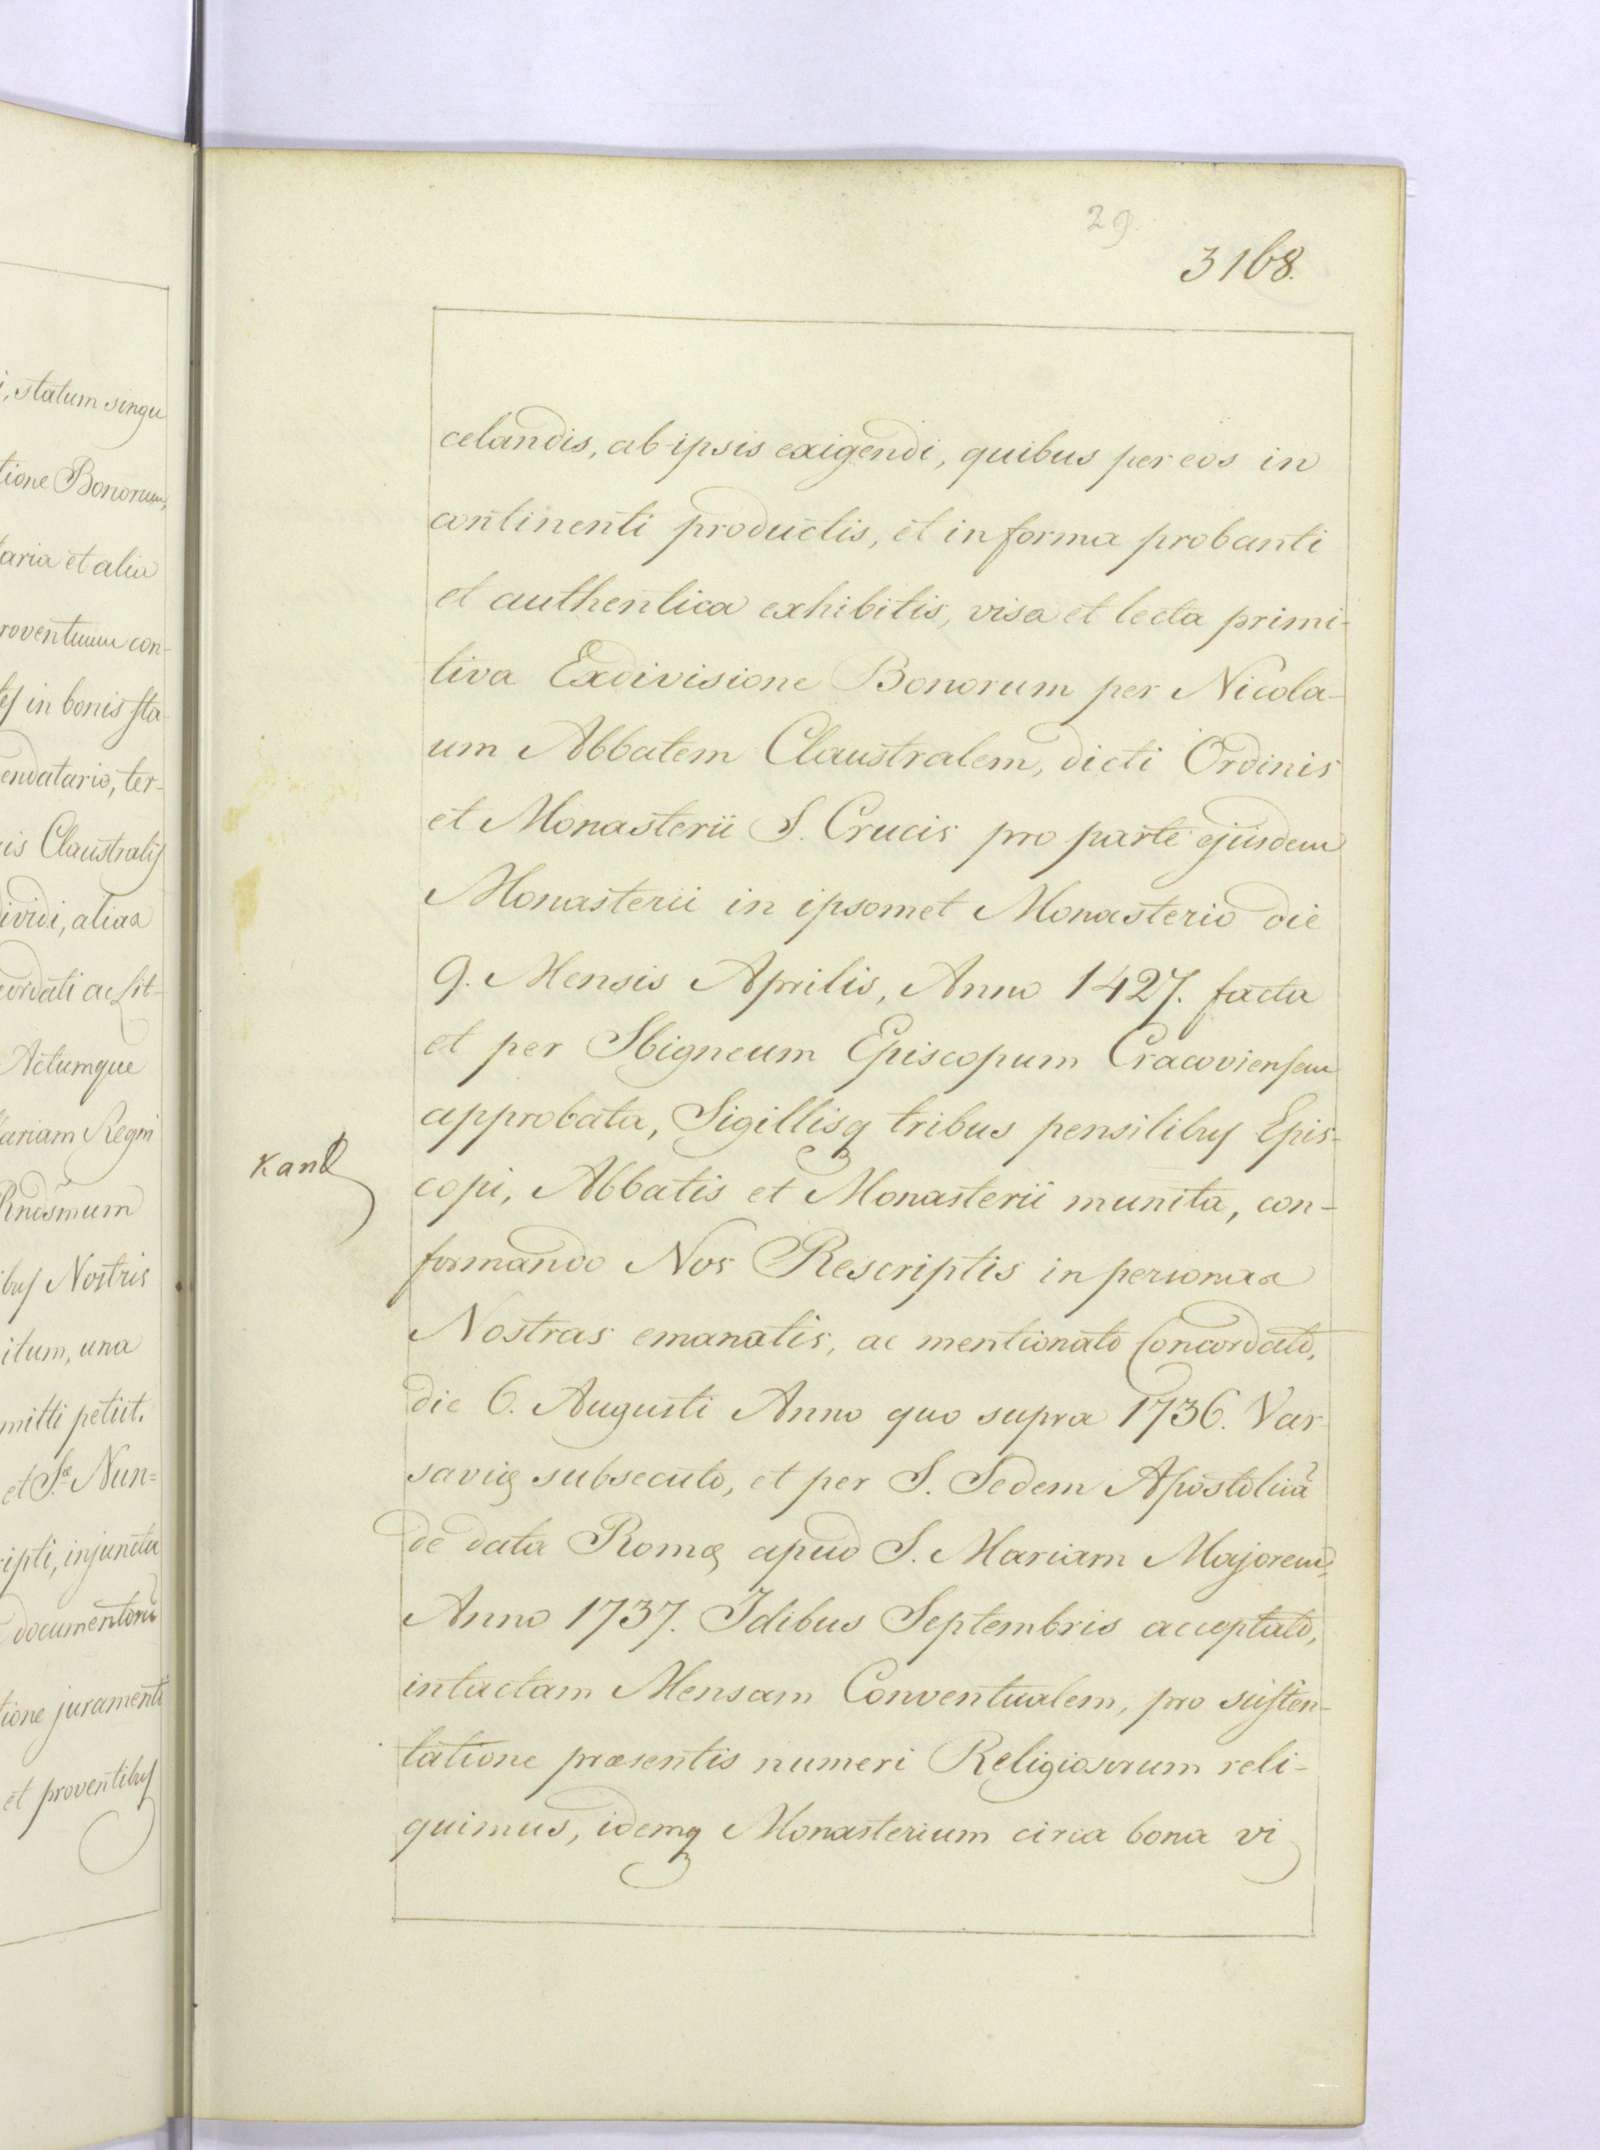 i, statum singu
tione Bonorum,
taria et alia
roventuum con-
tes in bonis sta-
endatario, ter-
is Claustralis
dividi, alias
cordati ac Lit-
Actumque
ariam Regni
Rndssmum
ibus Nostris
itum, una
mitti petiit.
et Sæ Nun=
ripti, injuncta
documentorũ
tione juramenti
et proventibus
29.
3168.
celandis, ab ipsis exigendi, quibus per eos in
continenti productis, et in forma probanti
et authentica exhibitis, visa et lecta primi-
tiva Exdivisione Bonorum per Nicola-
um Abbatem Claustralem, dicti Ordinis
et Monasterii S. Crucis pro parte ejusdem
Monasterii in ipsomet Monasterio die
9. Mensis Aprilis, Anno 1427. facta
et per Sbigneum Episcopum Cracoviensem
approbata, Sigillisq tribus pensilibus Epis-
copi, Abbatis et Monasterii munita, con-
formando Nos Rescriptis in personas
Nostras emanatis, ac mentionato Concordato,
die 6. Augusti Anno quo supra 1736. Var
savię subsecuto, et per S. Sedem Apostolicã
de data Romę apud S. Mariam Majorem,
Anno 1737. Idibus Septembris acceptato,
intactam Mensam Conventualem, pro susten-
tatione præsentis numeri Religiosorum reli-
quimus, idemq Monasterium circa bona vi